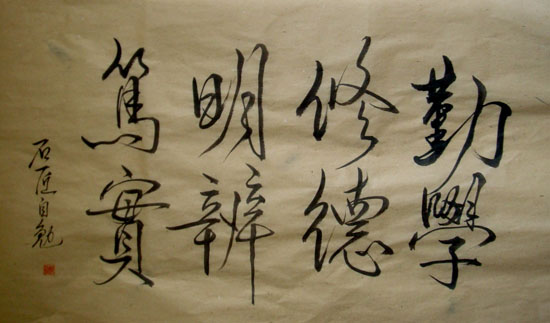 勤學
修德
明辨
篤實
石匠自勉